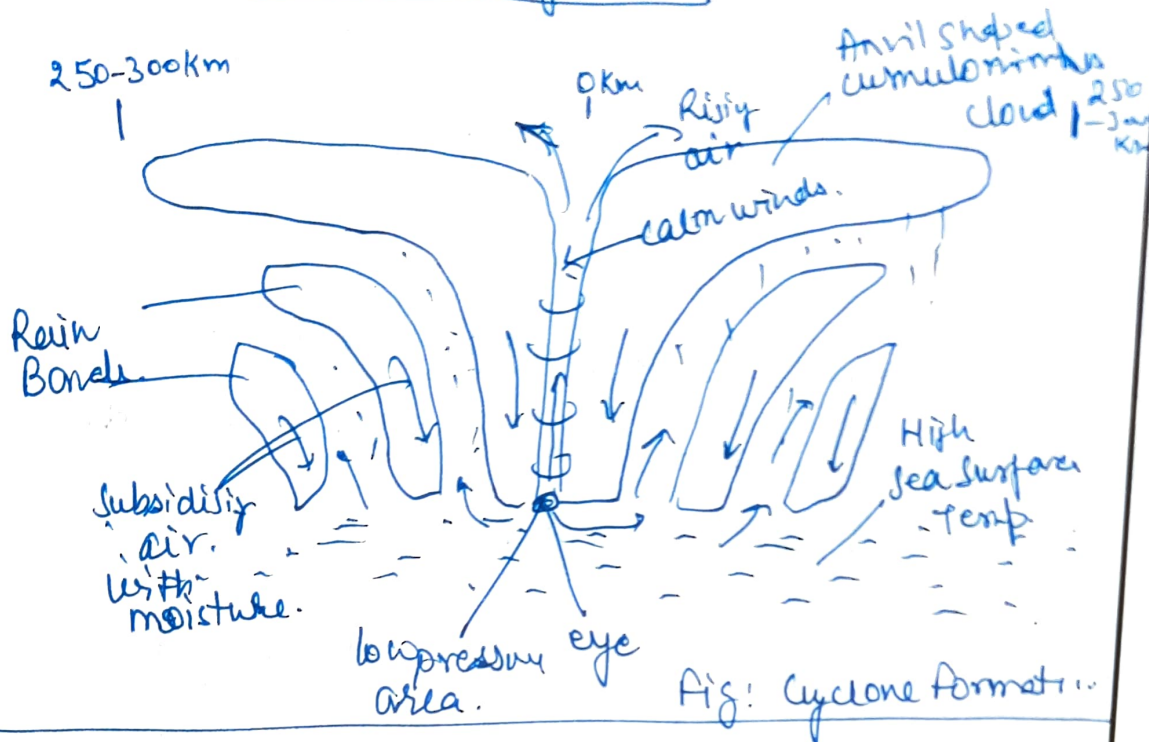 250-300km
0Km
Anvil shaped
cumulonimbus
cloud
250
Km
Rising
air
calm winds.
Rain
Bands.
subsidisiy
air.
with
moisture.
High
sea surface
Temp.
low pressure
area.
eye
Fig: Cyclone Formati..